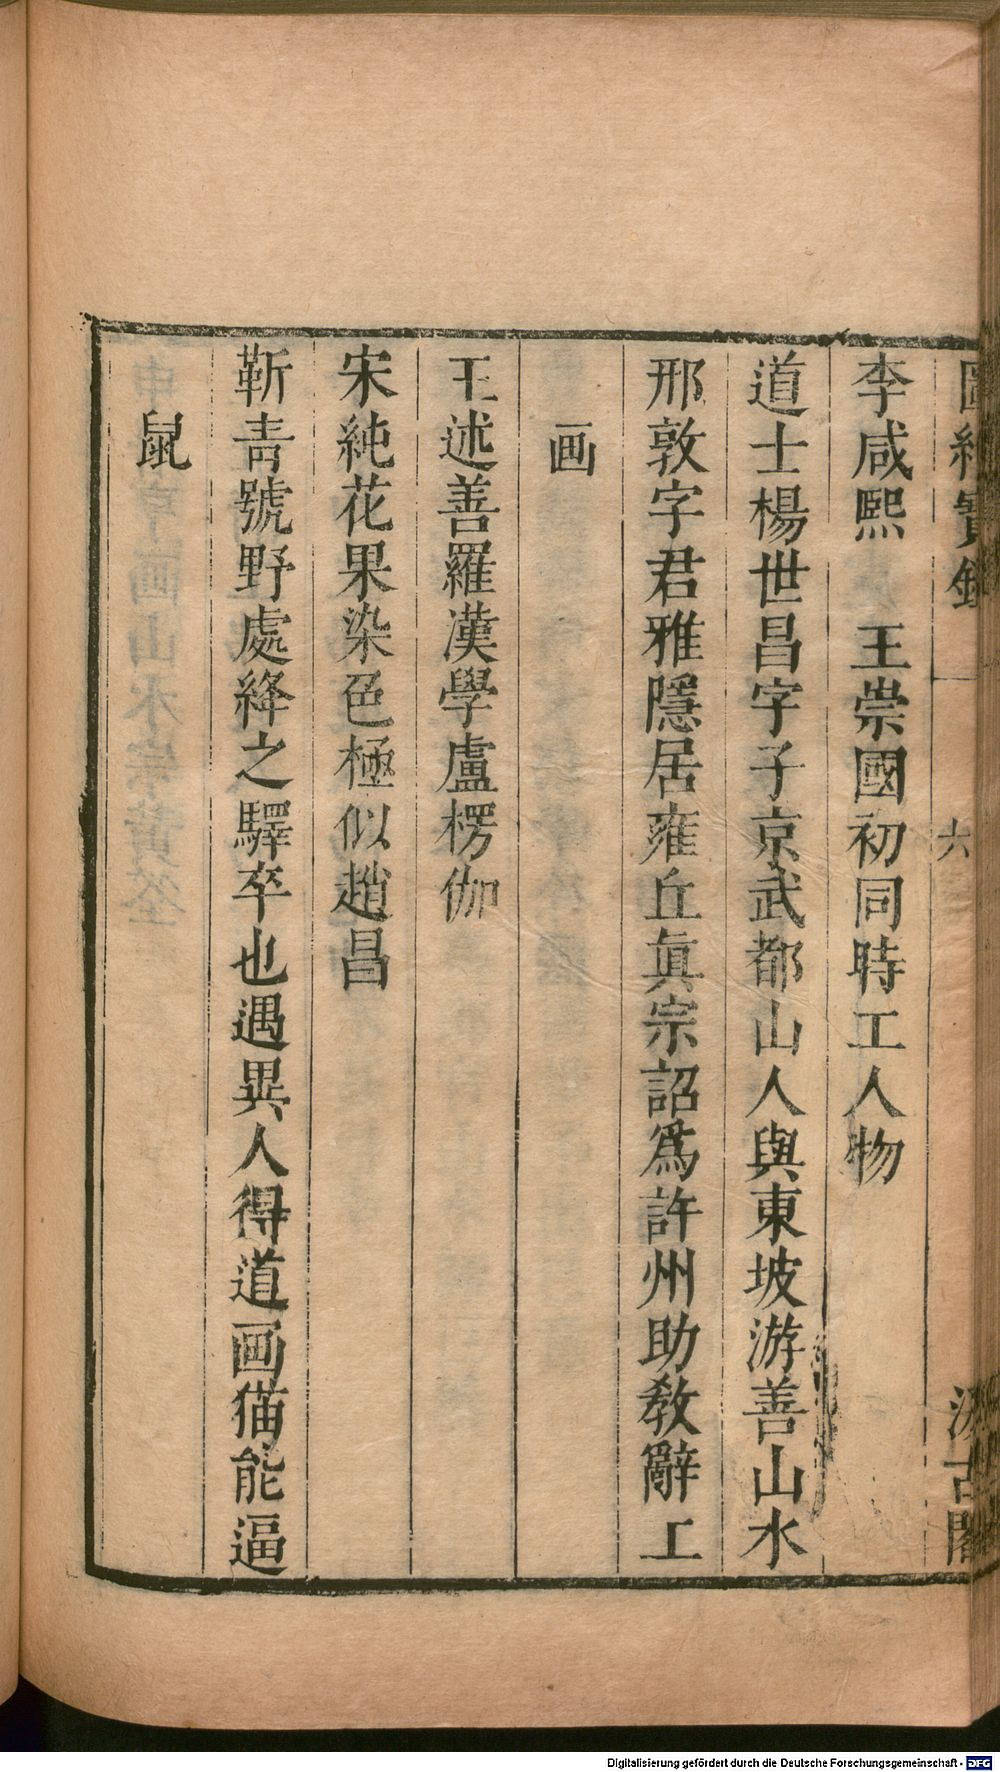 圖繪寶鑑 六 汲古閣
李咸熙 王崇國初同時工人物
道士楊世昌字子京武都山人與東坡游善山水
邢敦字君雅隱居雍丘眞宗詔爲許州助敎辭工
画
王述善羅漢學盧楞伽
宋純花果染色極似趙昌
靳青號野處絳之驛卒也遇異人得道画猫能逼
鼠
Digitalisierung gefördert durch die Deutsche Forschungsgemeinschaft - DFG